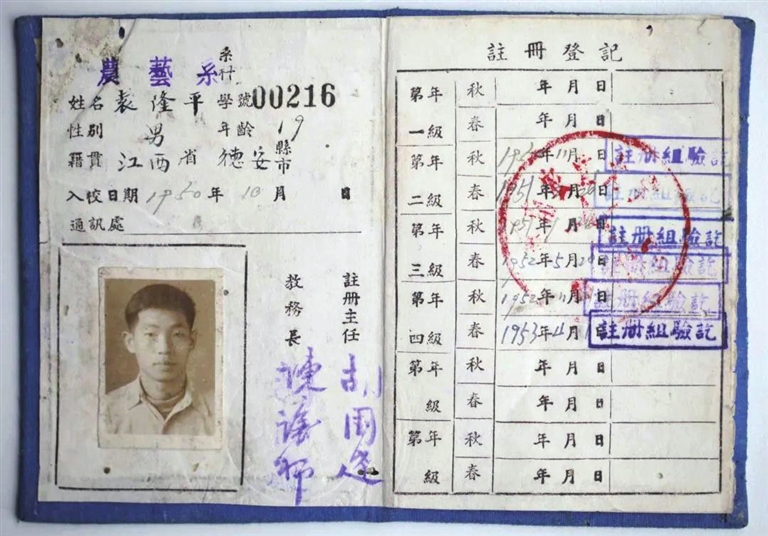 農藝系
系科
姓名 袁隆平 學號 00216
性別 男 年齡 19
籍貫 江西省 德安 縣市
入校日期 1950年10月 日
通訊處
註冊主任
教務長
註冊登記
第一年級 秋 年 月 日
春 年 月 日
第二年級 秋 年11月 日 註册組驗訖
春 1951年5月 日 註册組驗訖
第三年級 秋 年 月 日 註册組驗訖
春 1952年5月 日 註册組驗訖
第四年級 秋 1952年 月 日 註册組驗訖
春 1953年4月 日 註册組驗訖
第 年級 秋 年 月 日
春 年 月 日
第 年級 秋 年 月 日
春 年 月 日